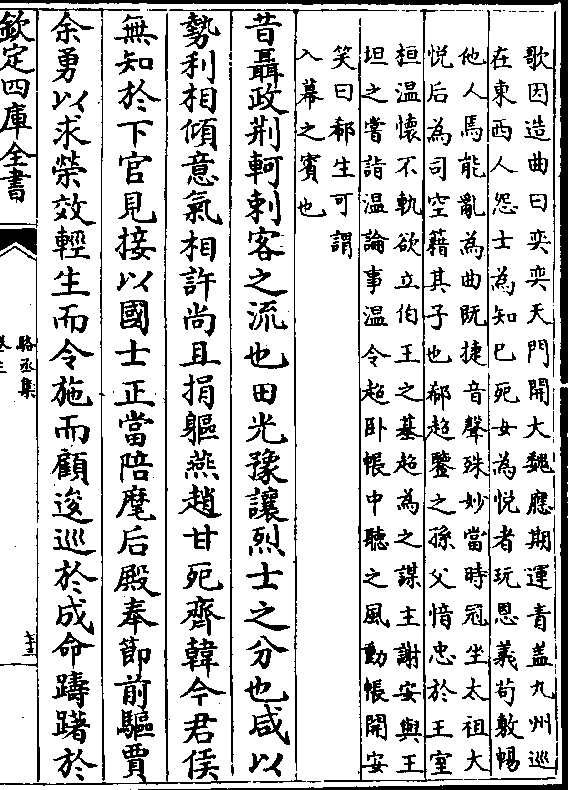 歌因造曲曰奕奕天門開大魏應期運青盖九州巡
在東西人怨士為知已死女為悦者玩恩義苟敷暢
他人焉能亂為曲既捷音聲殊妙當時冠坐太祖大
悦后為司空藉其子也郗超鑒之孫父愔忠於王室
桓温懷不軌欲立伯王之基超為之謀主謝安與王
坦之嘗詣温論事温令超卧帳中聽之風動帳開安
笑曰郗生可謂
入幕之賓也
昔聶政荆軻刺客之流也田光豫讓烈士之分也咸以
勢利相傾意氣相許尚且捐軀燕趙甘死齊韓今君侯
無知於下官見接以國士正當陪麾后殿奉節前驅賈
余勇以求榮效輕生而令施而顧逡巡於成命躊躇於
欽定四庫全書
駱丞集
卷三